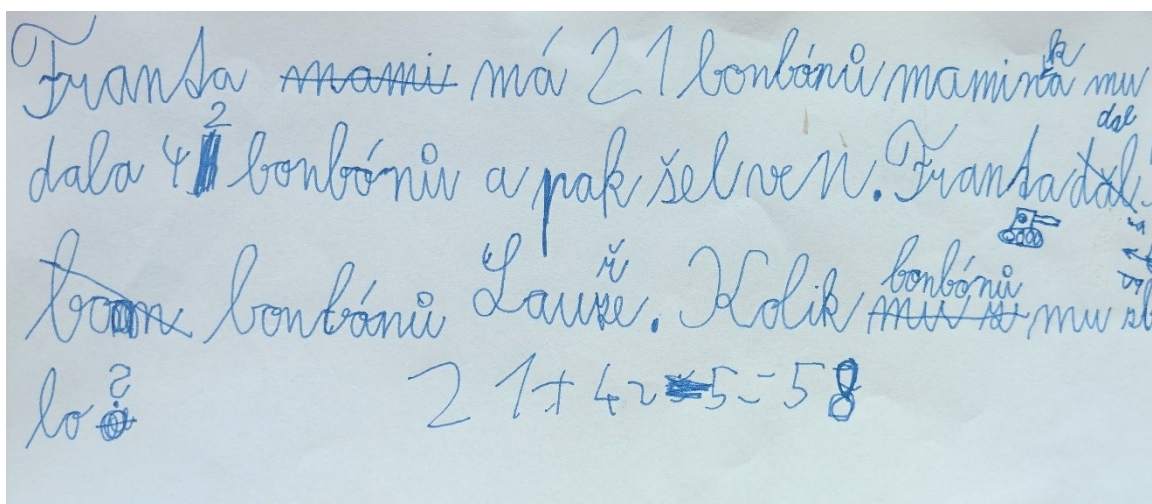 Franta má 21 bonbónů maminka mu
dala 42 bonbónů a pak šel ven. Franta dal
bonbónů Lauře. Kolik bonbónů mu zb
lo?
21+42-5=58